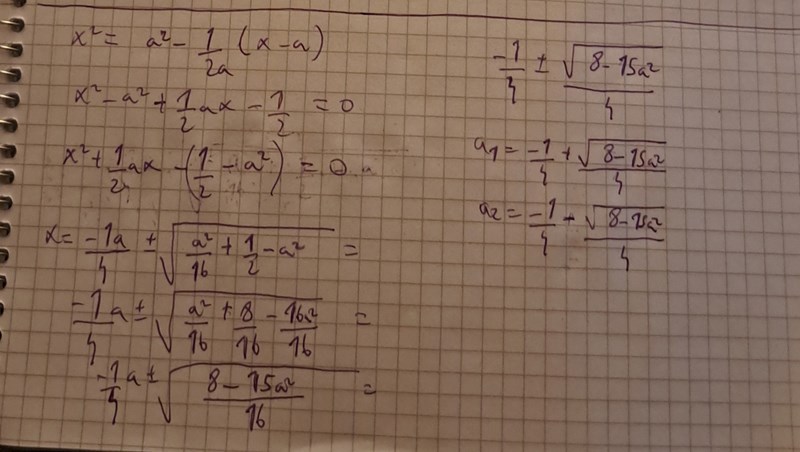 x² = a² - 1/2a (x - a)
x² - a² + 1/2 ax - 1/2 = 0
x² + 1/2 ax - (1/2 - a²) = 0
x = -1a/4 ± √(a²/16 + 1/2 - a²) =
-1/4 a ± √(a²/16 + 8/16 - 16a²/16) =
-1/4 a ± √((8 - 15a²)/16) =
-1/4 ± √(8 - 15a²)/4
a₁ = -1/4 + √(8 - 15a²)/4
a₂ = -1/4 - √(8 - 15a²)/4